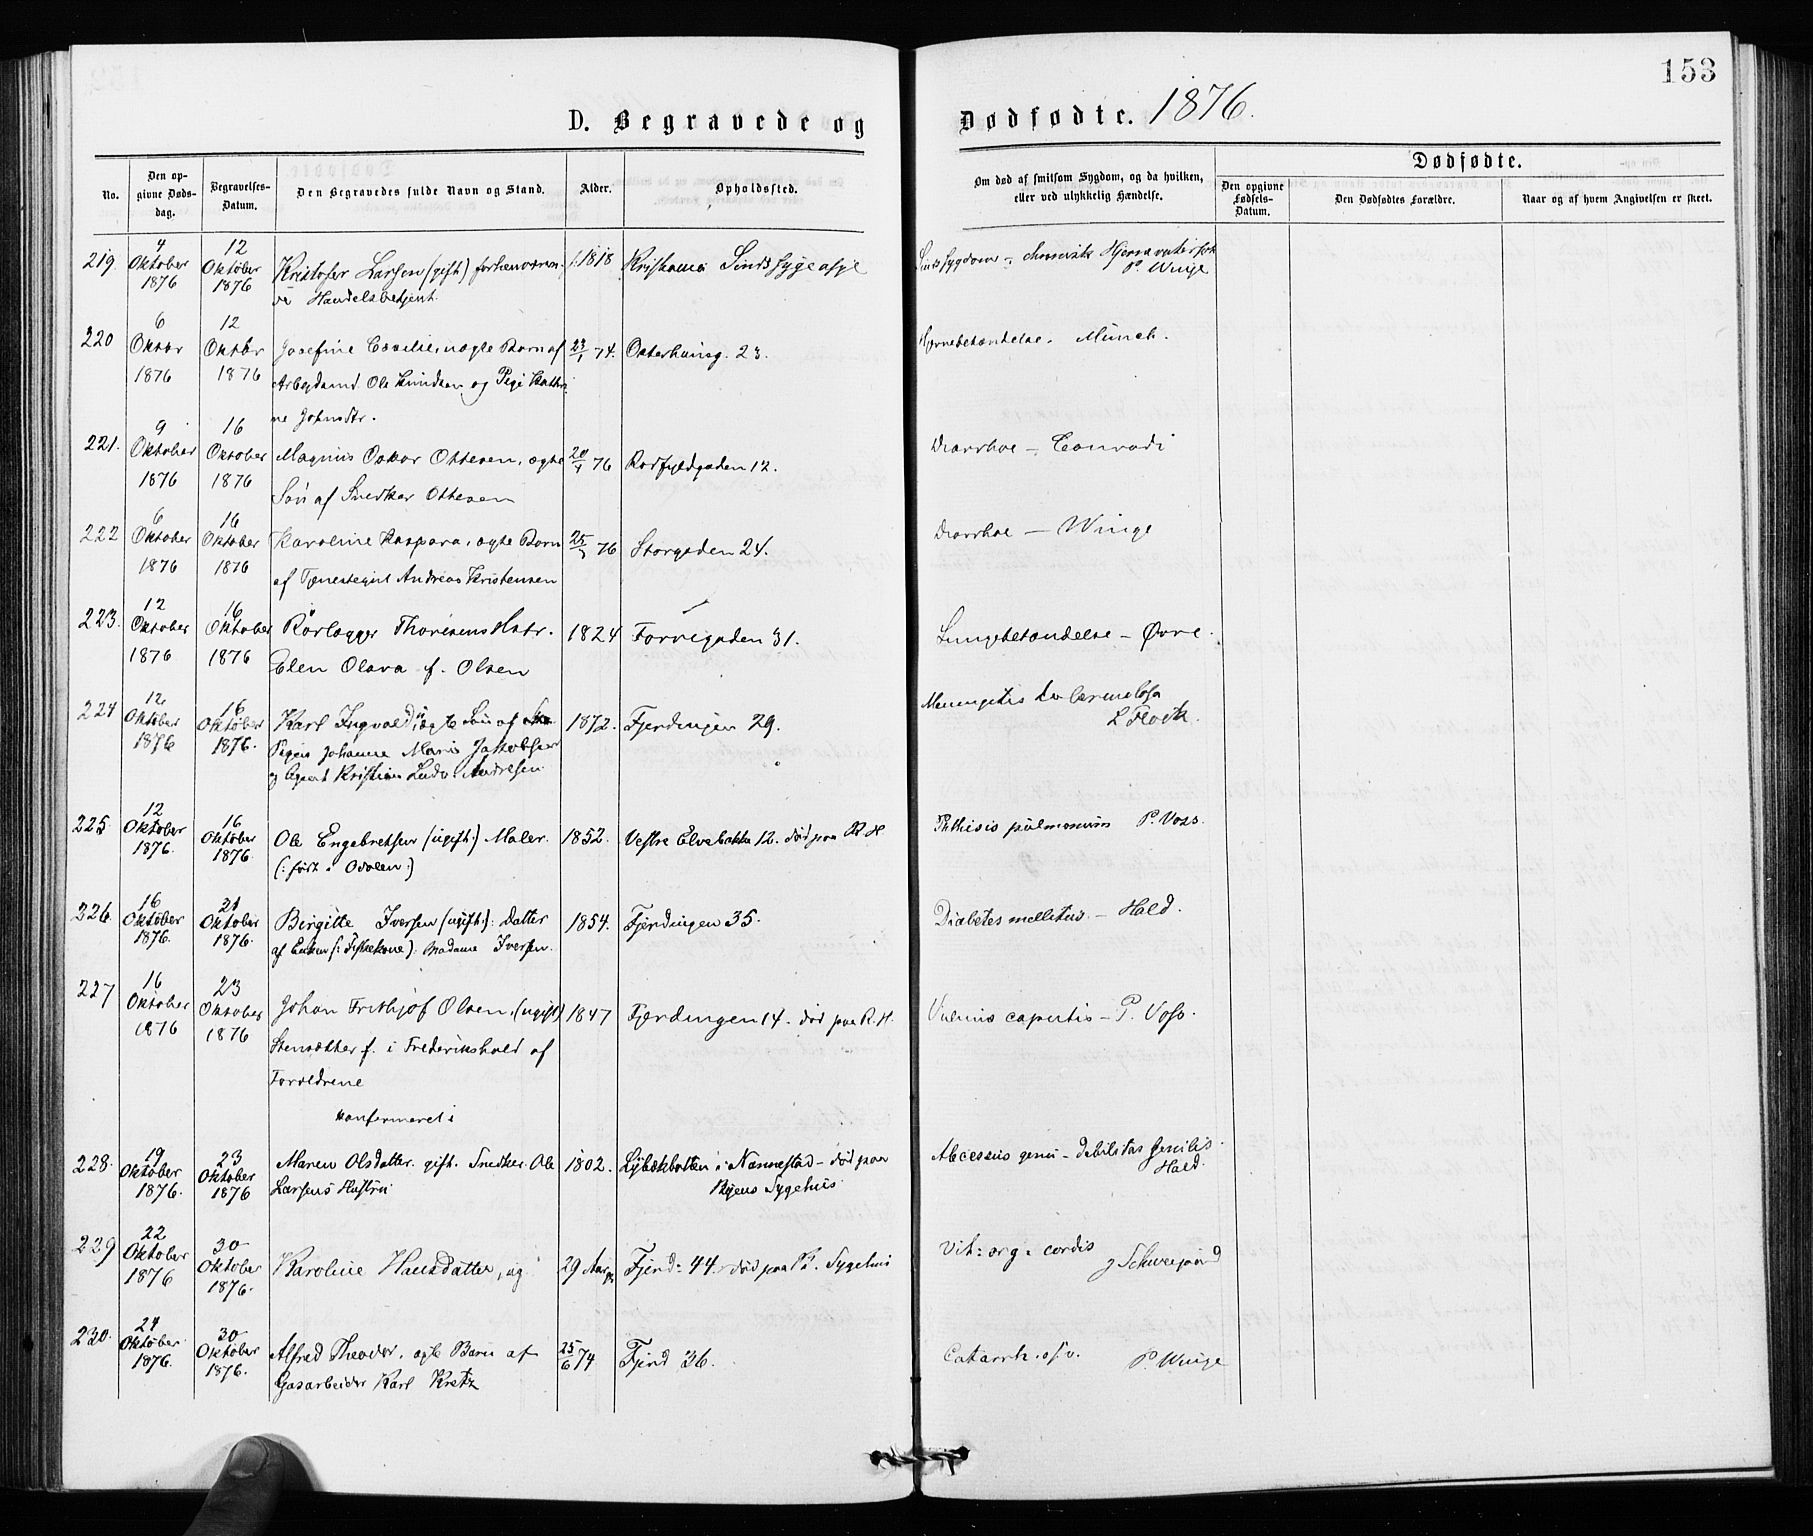 153
D. Begravede og Dødfødte. 1876.
No.
Den opgivne Dødsdag.
Begravelses-Datum.
Den Begravedes fulde Navn og Stand.
Alder.
Opholdssted.
Om død af smitsom Sygdom, og da hvilken, eller ved ulykkelig Hændelse.
Dødfødte.
Den opgivne Fødsels-Datum.
Den Dødfødtes Forældre.
Naar og af hvem Angivelsen er skeet.
219. 4 Oktober 1876 12 Oktober 1876 Kristofer Larsen (gift) forhenværen- f. 1818 Kristiania Sindssygeasyl Sindssygdom
de Handelsbetjent. P. Winge
220 6 Oktbr 1876 12 Oktbr 1876 Josefine Cecilie, uægte Barn af 23/1 74. Osterhausg. 23. Hjernebetændelse. Münch.
Arbejdsmd. Ole Knudsen og Pige Kathri-
ne Johnsdtr.
221. 9 Oktober 1876 16 Oktober 1876 Magnus Oskar Ottesen, ægte 20/1 76 Rødfyldgaden 12. Diarrhoe - Conradi
Søn af Snedker Ottesen
222 6 Oktober 1876 16 Oktober 1876 Karoline Kaspara, ægte Barn 25/7 76 Storgaden 24. Diarrhoe - Winge
af Tjenestegut Andreas Kristensen
223. 12 Oktober 1876 16 Oktober 1876 Rørlægger Thoresens Hstr. 1824 Torvegaden 31. Lungebetændelse - Øvre.
Elen Olava f. Olsen
224 12 Oktober 1876 16 Oktober 1876. Karl Ingvald, uægte Søn af 1872. Fjerdingen 29. Meningitis tuberculosa
Pigen Johanne Marie Jakobsen L Flock.
og Agent Kristian Ludv. Andresen
225 12 Oktober 1876. 16 Oktober 1876. Ole Engebretsen (ugift.) Maler. 1852. Vestre Elvebakke 12. død paa R. H. Phthisis pulmonum P. Voss.
(: født i Odalen :)
226. 16 Oktober 1876. 21 Oktober 1876. Birgitte Iversen (ugift.) Datter 1854. Fjerdingen 35. Diabetes mellitus. - Hald.
af Enken (: Fiskekone) : Madame Iversen.
227 16 Oktober 1876 23 Oktober 1876 Johan Frithjof Olsen, (ugift) 1847 Fjerdingen 14. død paa R. H. Vulnus capitis - P. Voss.
Stensætter f. i Frederikshald af
Forældrene
konfermeret i
228. 19 Oktober 1876. 23 Oktober 1876 Maren Olsdatter. gift. Snedker Ole 1802. i Nannestad - død paa Abcessus genu - debilitas senilis.
Larsens Hustru Byens Sygehus Hald.
229 22 Oktober 1876 30 Oktober 1876. Karoline Hansdatter, ug. 29 Aar gl. Fjerd: 44. død paa R. Sygehus Vit: org: cordis
Schweigaard
230. 24 Oktober 1876. 30 Oktober 1876. Alfred Theodor, ægte Barn af 25/6 74 Fjerd 36. Catarrh. P. Winge
Gasarbeider Karl Kretz